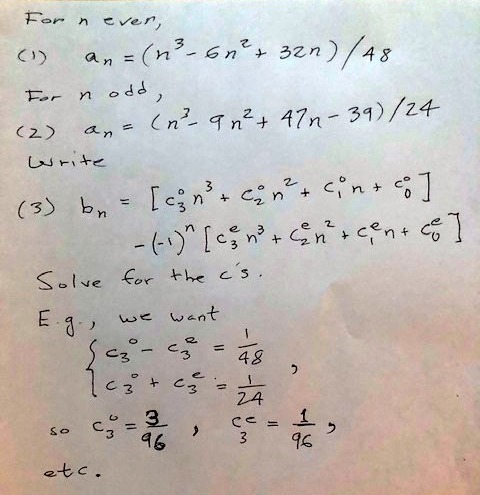 For n even,
(1) aₙ = (n³ - 6n² + 32n)/48
For n odd,
(2) aₙ = (n³ - 9n² + 47n - 39)/24
Write
(3) bₙ = [c₃ᵒn³ + c₂ᵒn² + c₁ᵒn + c₀ᵒ]
-(-1)ⁿ[c₃ᵉn³ + c₂ᵉn² + c₁ᵉn + c₀ᵉ]
Solve for the c's.
E.g., we want
{ c₃ᵒ - c₃ᵉ = 1/48
c₃ᵒ + c₃ᵉ = 1/24 ,
so c₃ᵒ = 3/96 , c₃ᵉ = 1/96 ,
etc.